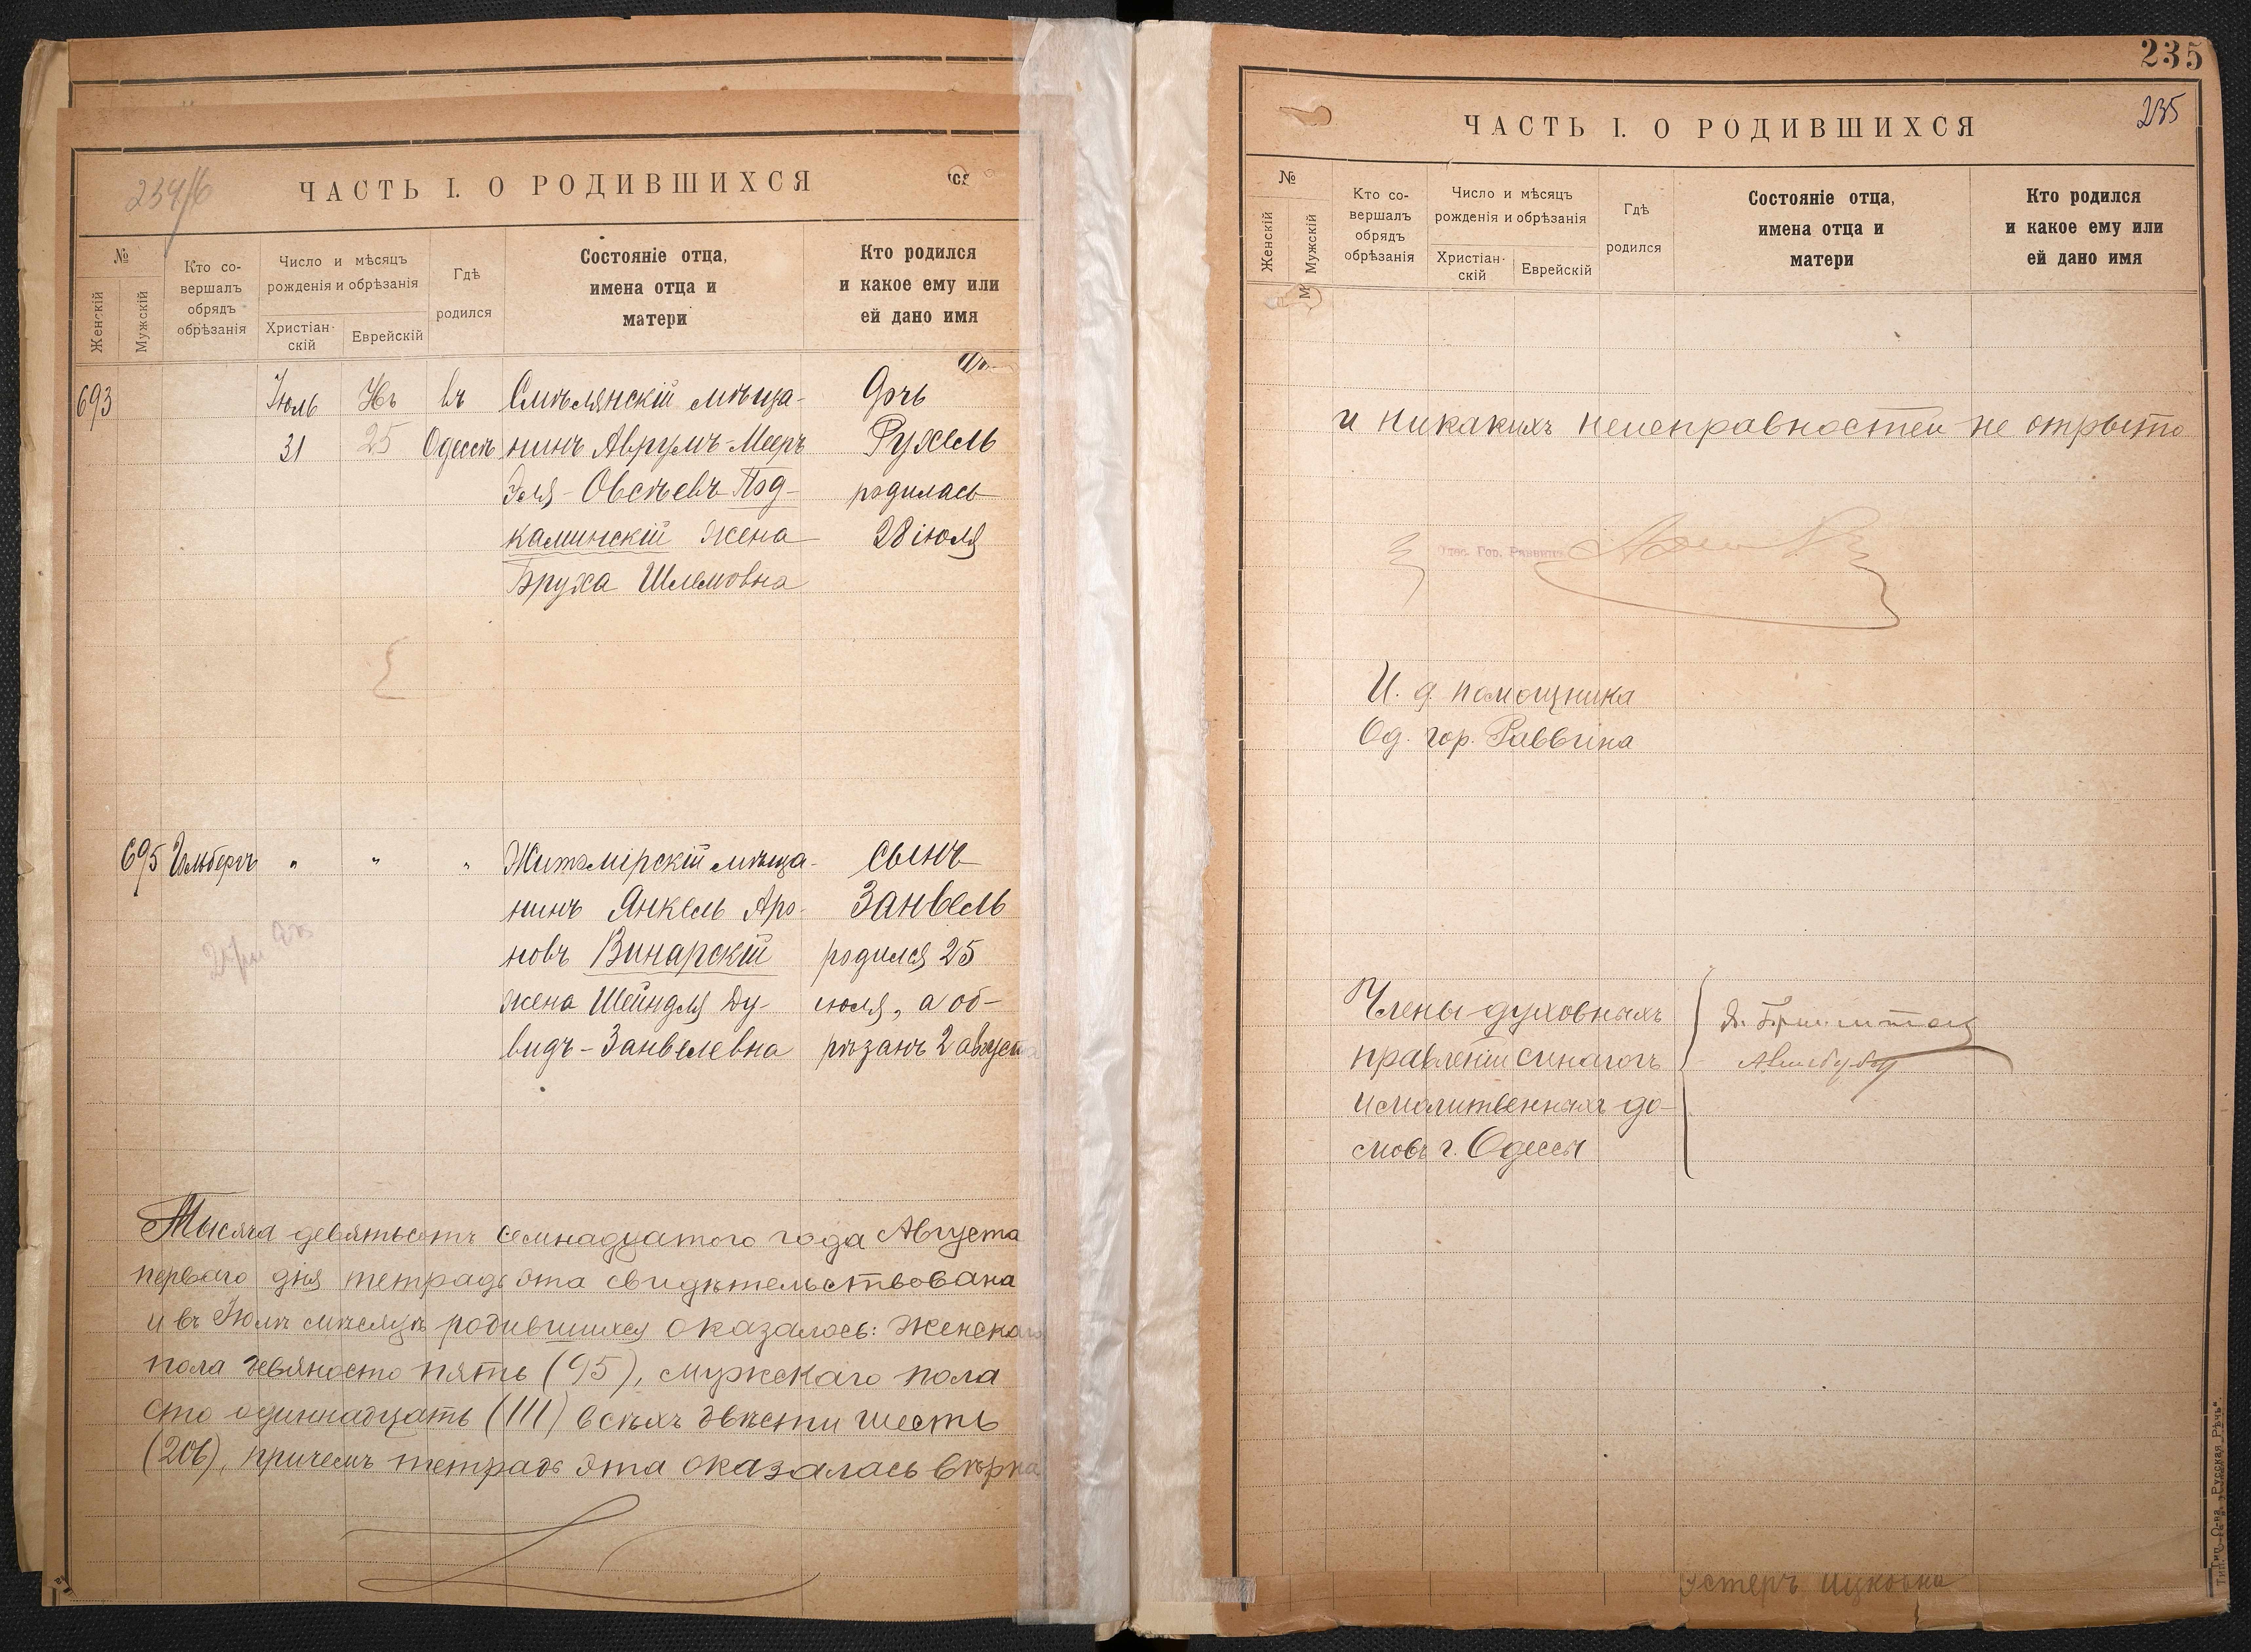 234/б
ЧАСТЬ I. О РОДИВШИХСЯ
№
Женскій
Мужскій
Кто со-
вершалъ
обрядъ
обрѣзанія
Число и мѣсяцъ
рожденія и обрѣзанія
Христіан-
скій
Еврейскій
Гдѣ
родился
Состояніе отца,
имена отца и
матери
Кто родился
и какое ему или
ей дано имя
693
Іюль
31
25
въ
Одессѣ
Смѣлянскій мѣща-
нинъ Аврумъ-Мееръ
Эля-Овсѣевъ Под-
каминскій жена
Бруха Шлемовна
Дочь
Рухель
родилась
28 іюля
695
"
"
"
Житомірскій мѣща-
нинъ Янкель Аро-
новъ Винарскій
жена Шейндля Ду-
видъ-Занвелевна
сынъ
Занвель
родился 25
іюля, а об-
рѣзанъ 2 августа
Тысяча девятьсотъ семнадцатого года Августа
перваго дня тетрадь эта свидѣтельствована
и въ Іюлѣ мѣсяцѣ родившихся оказалось: женскаго
пола девяносто пять (95), мужскаго пола
сто одиннадцать (111) всѣхъ двѣсти шесть
(206), причемъ тетрадь эта оказалась вѣрна
235
235
ЧАСТЬ I. О РОДИВШИХСЯ
№
Женскій
Мужскій
Кто со-
вершалъ
обрядъ
обрѣзанія
Число и мѣсяцъ
рожденія и обрѣзанія
Христіан-
скій
Еврейскій
Гдѣ
родился
Состояніе отца,
имена отца и
матери
Кто родился
и какое ему или
ей дано имя
и никакихъ неисправностей не открыто
Одес. Гор. Раввинъ
И. д. помощника
Од. гор. Раввина
Члены духовныхъ
правленій синагогъ
и молитвенныхъ до-
мовъ г. Одессы
Эстеръ Ицковна
Тип. О-ва „Русская Рѣчь“.